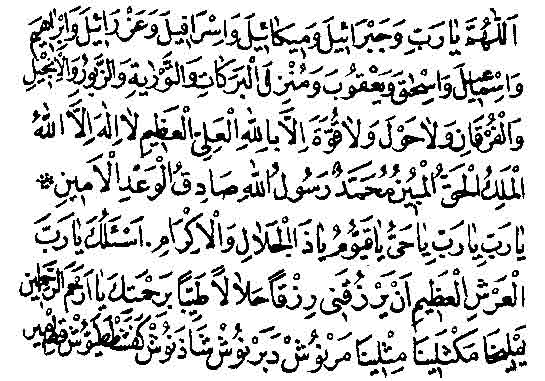 اَللّٰهُمَّ يَا رَبِّ وَجَبْرَائِيلَ وَمِيكَائِيلَ وَاِسْرَافِيلَ وَعَزْرَائِيلَ وَاِبْرَاهِيمَ
وَاِسْمَاعِيلَ وَاِسْحٰقَ وَيَعْقُوبَ وَمُنْزِلَ الْبَرَكَاتِ وَالتَّوْرٰيةِ وَالزَّبُورِ وَالْاِنْجِيلِ
وَالْفُرْقَانِ وَلَا حَوْلَ وَلَا قُوَّةَ اِلَّا بِاللّٰهِ الْعَلِىِّ الْعَظِيمِ لَا اِلٰهَ اِلَّا اللّٰهُ
الْمَلِكُ الْحَقُّ الْمُبِينُ مُحَمَّدٌ رَسُولُ اللّٰهِ صَادِقُ الْوَعْدِ الْاَمِينِ *
يَا رَبِّ يَا رَبِّ يَا حَىُّ يَا قَيُّومُ يَا ذَا الْجَلَالِ وَالْاِكْرَامِ . اَسْئَلُكَ يَا رَبَّ
الْعَرْشِ الْعَظِيمِ اَنْ يَرْزُقَنِى رِزْقًا حَلَالًا طَيِّبًا بِرَحْمَتِكَ يَا اَرْحَمَ الرَّاحِمِينَ
يَمْلِيخَا مَكْثَلِينَا مِثْلِينَا مَرْنُوشْ دَبَرْنُوشْ شَاذَنُوشْ كَفَشْطَطَيُوشْ قِطْمِيرْ